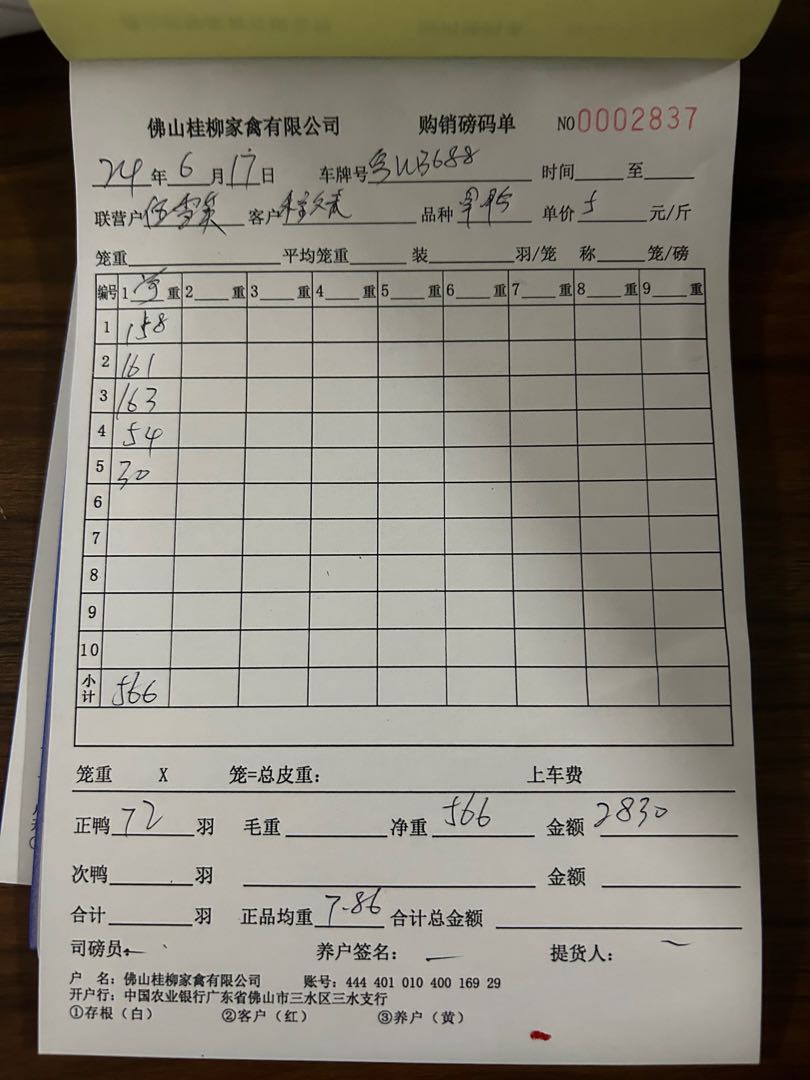 佛山桂柳家禽有限公司 购销磅码单 NO0002837
24年6月17日 车牌号粤UB688 时间 至
联营户 客户 品种 单价5元/斤
笼重 平均笼重 装 羽/笼 称 笼/磅
编号 1 重 2 重 3 重 4 重 5 重 6 重 7 重 8 重 9 重
1 158
2 161
3 163
4 54
5 30
6
7
8
9
10
小计 566
笼重 X 笼=总皮重： 上车费
正鸭72羽 毛重 净重566 金额2830
次鸭 羽 金额
合计 羽 正品均重7.86 合计总金额
司磅员： 养户签名： 提货人：
户 名：佛山桂柳家禽有限公司 账号：444 401 010 400 169 29
开户行：中国农业银行广东省佛山市三水区三水支行
①存根（白） ②客户（红） ③养户（黄）